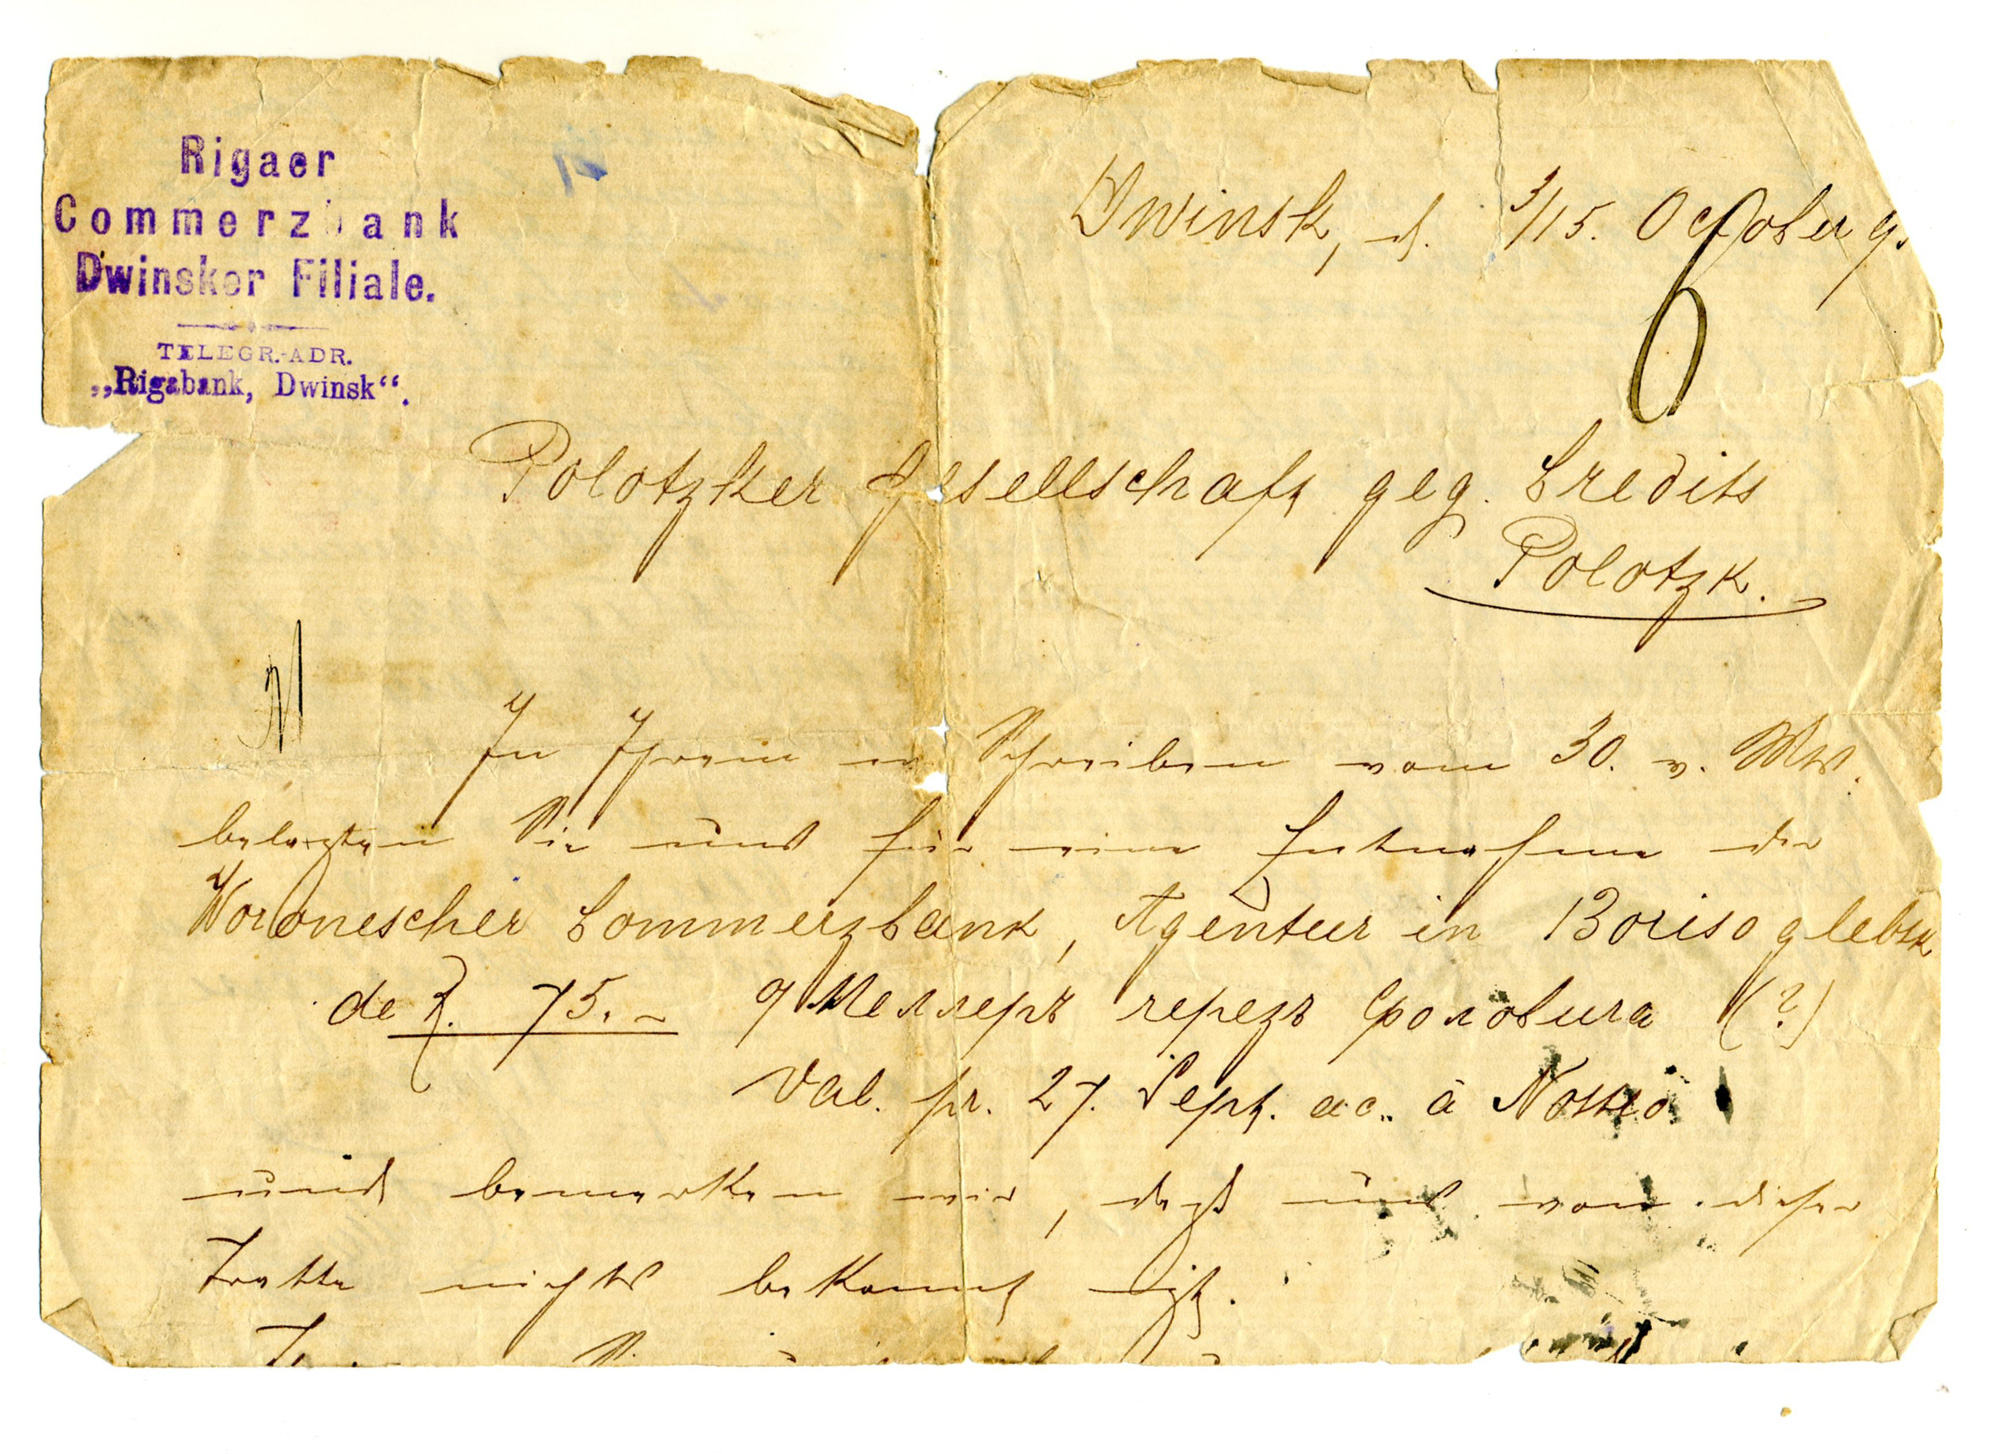 Rigaer
Commerzbank
Dwinsker Filiale.
TELEGR.-ADR.
„Rigabank, Dwinsk“.
Dwinsk, d. 3/15. October 9.
6
Polotzker Gesellschaft geg. Credits
Polotzk.
In Ihrem Schreiben vom 30. v. Mts.
belasten Sie uns für eine Entnahme der
Woronescher Commerzbank, Agentur in Borisoglebsk
de R. 75.–
Меллеръ черезъ Фоловича (?)
Val. pr. 27. Sept. ac. à Nostro
und bemerken wir, daß uns von dieser
Tratte nichts bekannt ist.